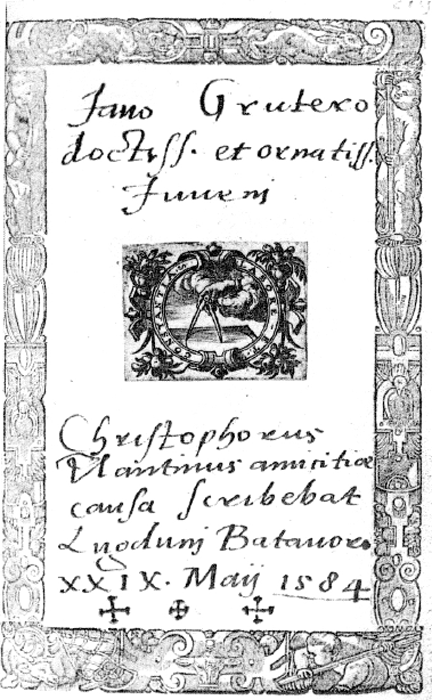 Jano Grutero
doctiss. et ornatiss.
Juueni
LABORE ET CONSTANTIA
Christophorus
Plantinus amicitiæ
causa scribebat
Lugdunj Batauor.
XXIX. Maij 1584